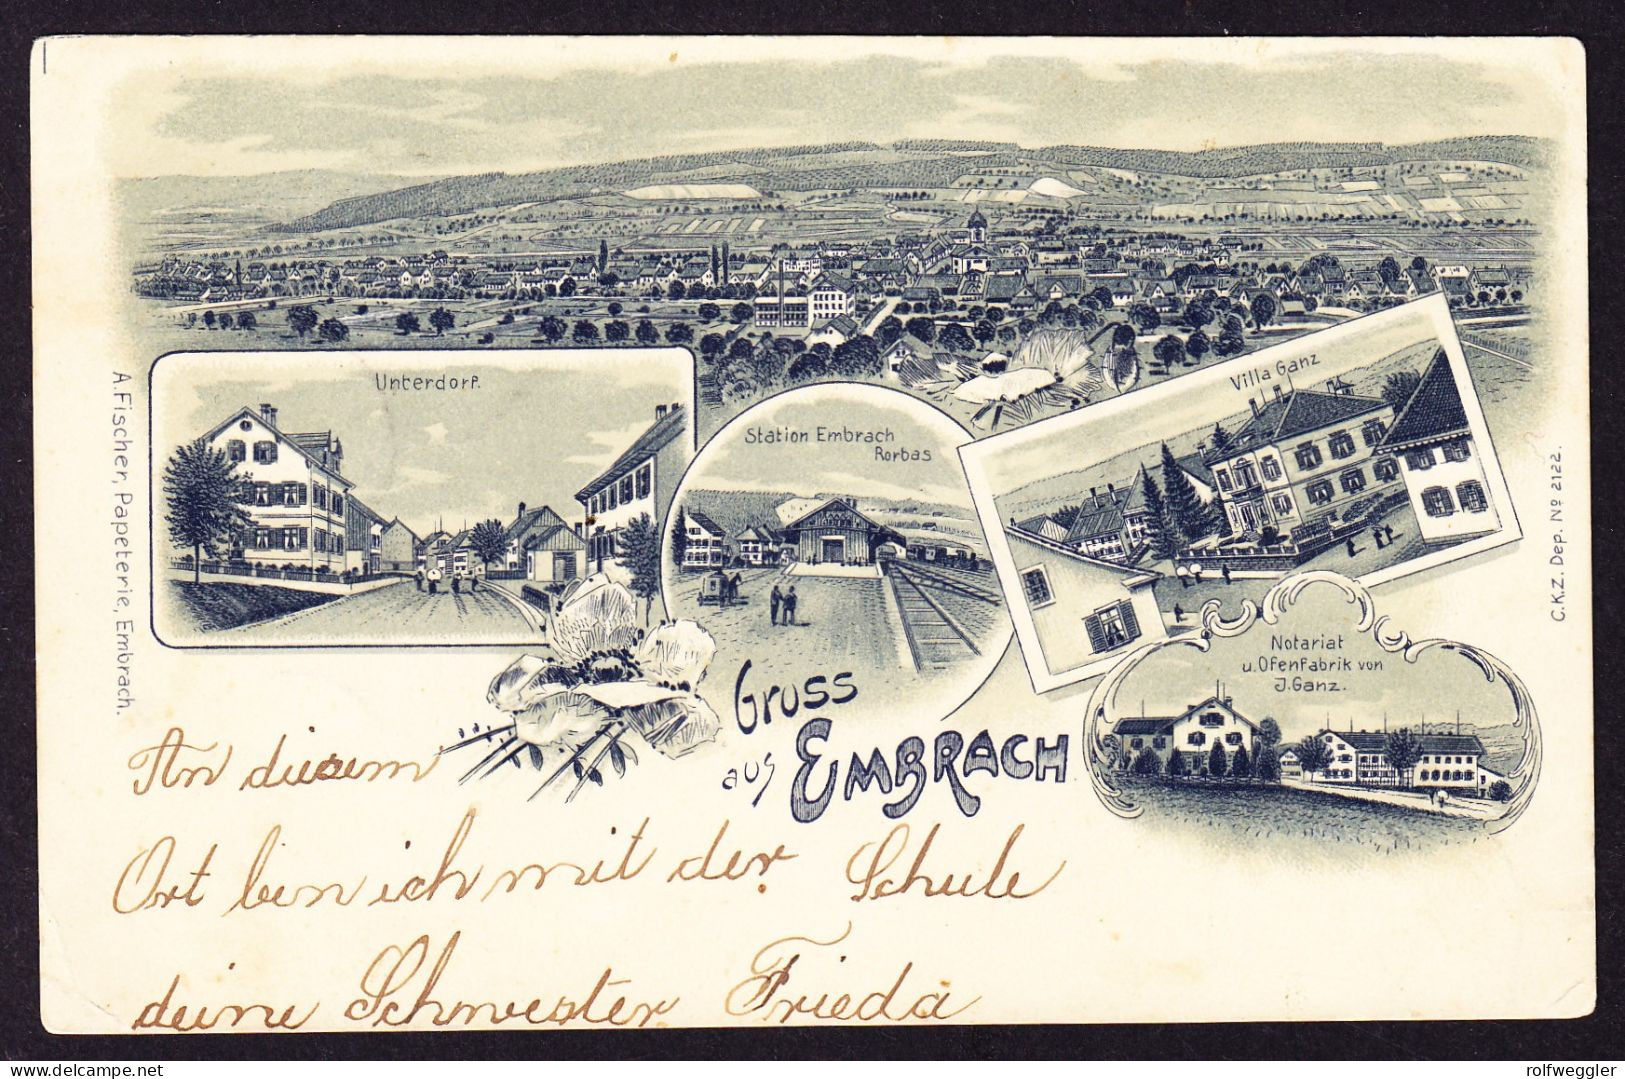 Unterdorf.
Station Embrach
Rorbas
Villa Ganz
Notariat
u. Ofenfabrik von
J. Ganz.
Gruss
aus EMBRACH
A. Fischer, Papeterie, Embrach.
C.K.Z. Dep. Nº 2122.
An diesem
Ort bin ich mit der Schule
deine Schwester Frieda
delcampe.net
rolfweggler